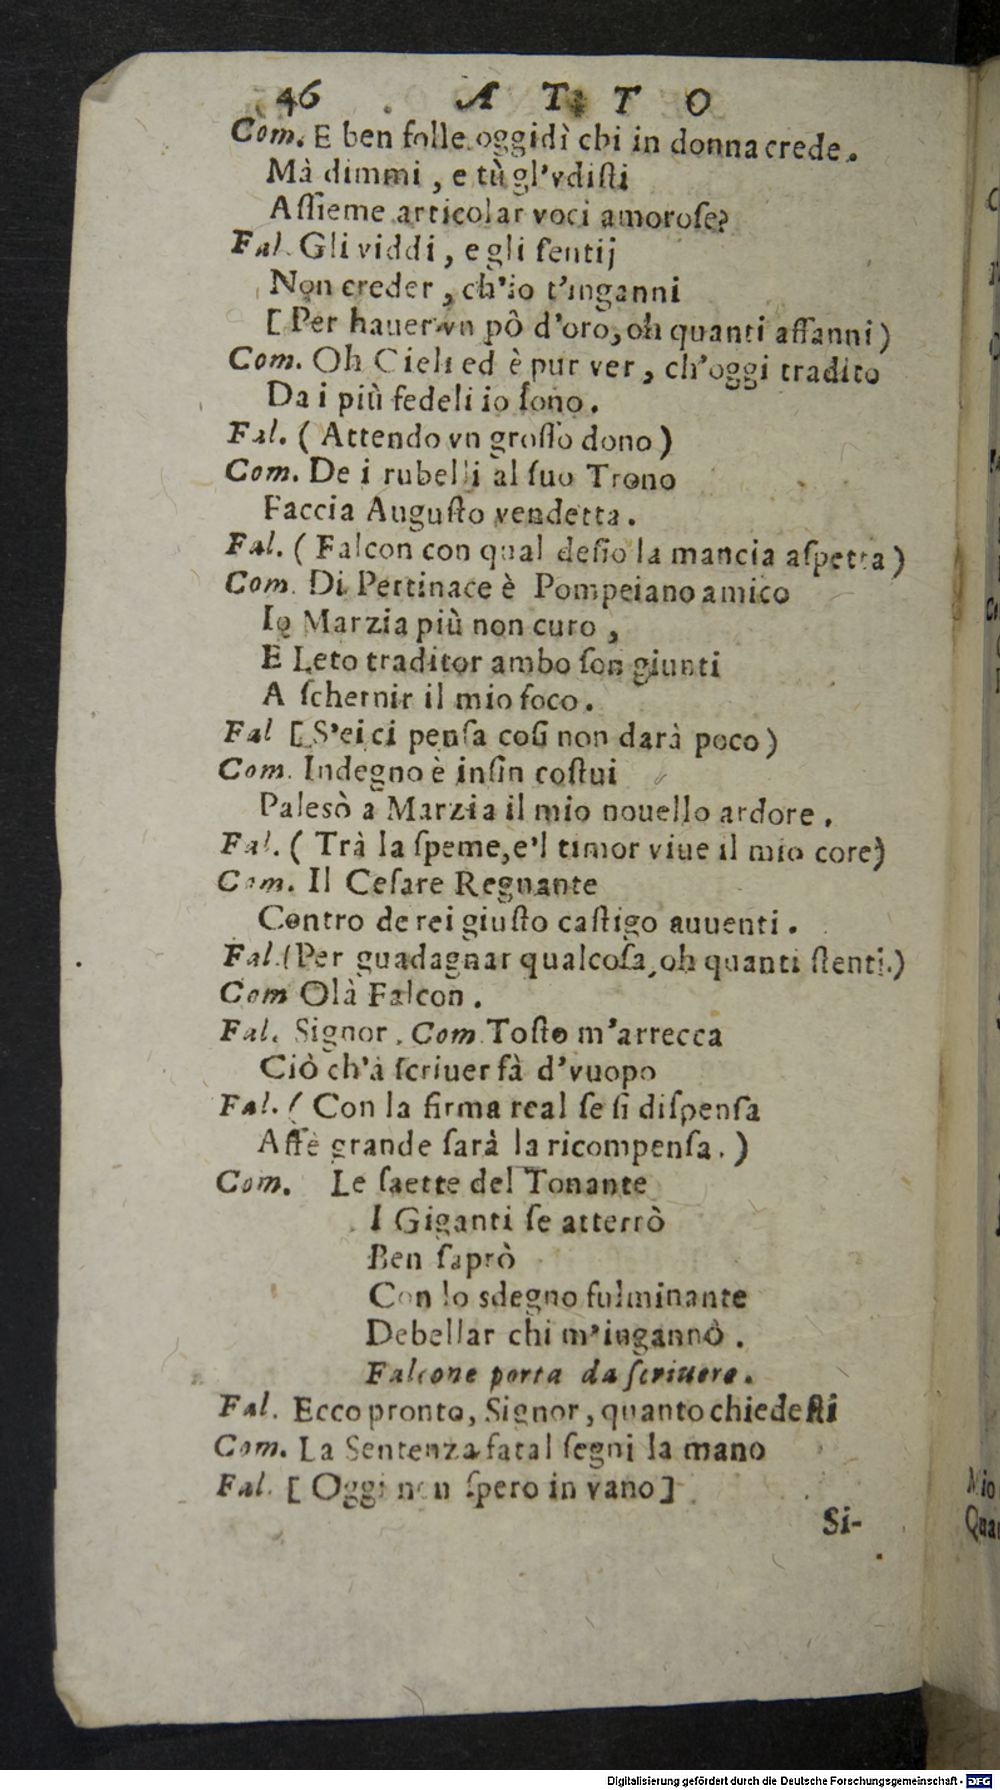 46 A T T O
Com. E ben folle oggidì chi in donna crede.
Mà dimmi, e tù gl'vdiſti
Aſſieme articolar voci amoroſe?
Fal. Gli viddi, e gli ſentij
Non creder, ch'io t'inganni
[Per hauer vn pò d'oro, oh quanti affanni)
Com. Oh Cieli ed è pur ver, ch'oggi tradito
Da i più fedeli io ſono.
Fal. (Attendo vn groſſo dono)
Com. De i rubelli al ſuo Trono
Faccia Auguſto vendetta.
Fal. (Falcon con qual deſio la mancia aſpetta)
Com. Di Pertinace è Pompeiano amico
Io Marzia più non curo,
E Leto traditor ambo ſon giunti
A ſchernir il mio foco.
Fal [S'ei ci penſa coſi non darà poco)
Com. Indegno è inſin coſtui
Palesò a Marzia il mio nouello ardore.
Fal. (Trà la ſpeme, e'l timor viue il mio core)
Com. Il Ceſare Regnante
Contro de rei giuſto caſtigo auuenti.
Fal. (Per guadagnar qualcoſa, oh quanti ſtenti.)
Com Olà Falcon.
Fal. Signor. Com. Toſto m'arrecca
Ciò ch'à ſcriuer fà d'vuopo
Fal. (Con la firma real ſe ſi diſpenſa
Affè grande ſarà la ricompenſa.)
Com. Le ſaette del Tonante
I Giganti ſe atterrò
Ben ſaprò
Con lo sdegno fulminante
Debellar chi m'ingannò.
Falcone porta da ſcriuere.
Fal. Ecco pronto, Signor, quanto chiedeſti
Com. La Sentenza fatal ſegni la mano
Fal. [Oggi non ſpero in vano]
Si-
Mio
Qua
Digitalisierung gefördert durch die Deutsche Forschungsgemeinschaft - DFG